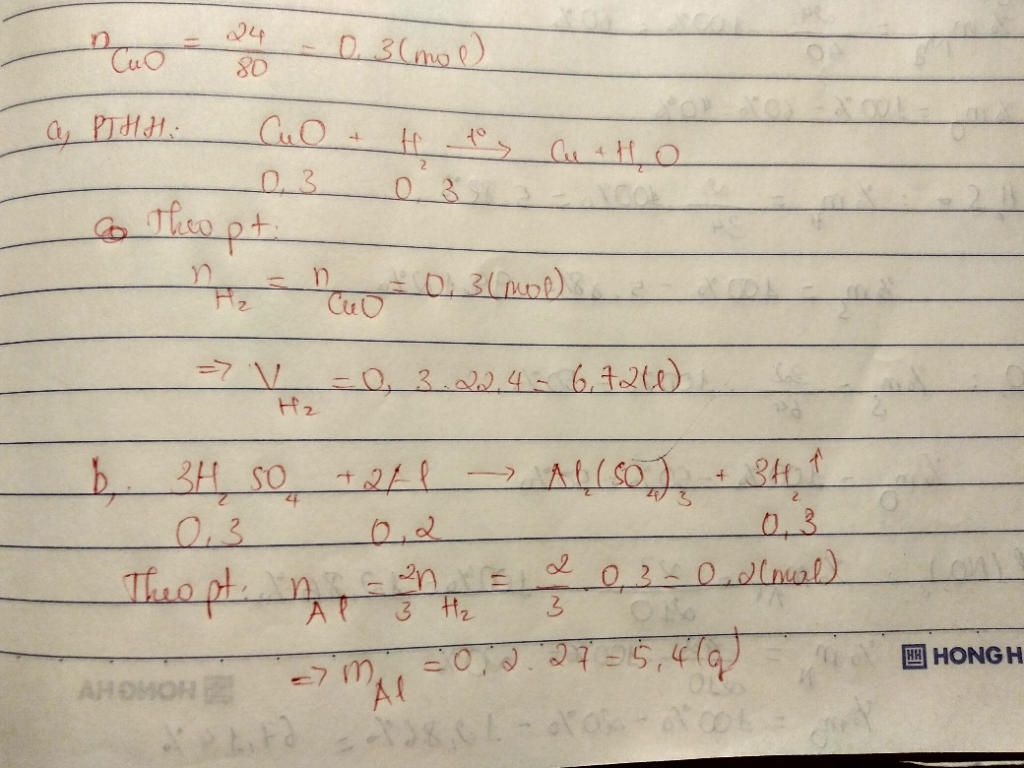 nCuO = 24/80 = 0,3(mol)
a, PTHH: CuO + H2 t°→ Cu + H2O
0,3 0,3
Theo pt:
nH2 = nCuO = 0,3(mol)
=> VH2 = 0,3.22,4 = 6,72(l)
b, 3H2SO4 + 2Al → Al2(SO4)3 + 3H2↑
0,3 0,2 0,3
Theo pt: nAl = 2/3 nH2 = 2/3 . 0,3 = 0,2(mol)
=> mAl = 0,2.27 = 5,4(g)
HONG H